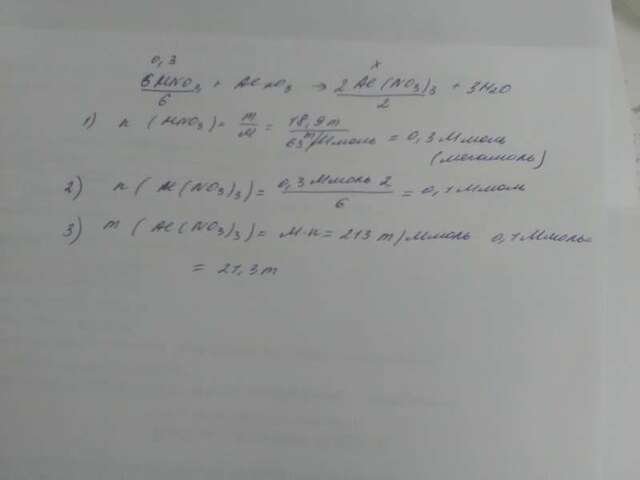 0,3 x
6HNO3 + Al2O3 → 2Al(NO3)3 + 3H2O
6 2
1) n(HNO3) = m/M = 18,9 т / 63 т/Ммоль = 0,3 Ммоль
(мегамоль)
2) n(Al(NO3)3) = 0,3 Ммоль 2 / 6 = 0,1 Ммоль
3) m(Al(NO3)3) = M·n = 213 т/Ммоль 0,1 Ммоль=
= 21,3 т